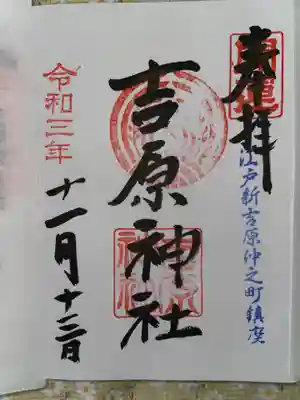 奉拝
開運
江戸新吉原仲之町鎮座
吉原神社
令和三年
十一月十三日